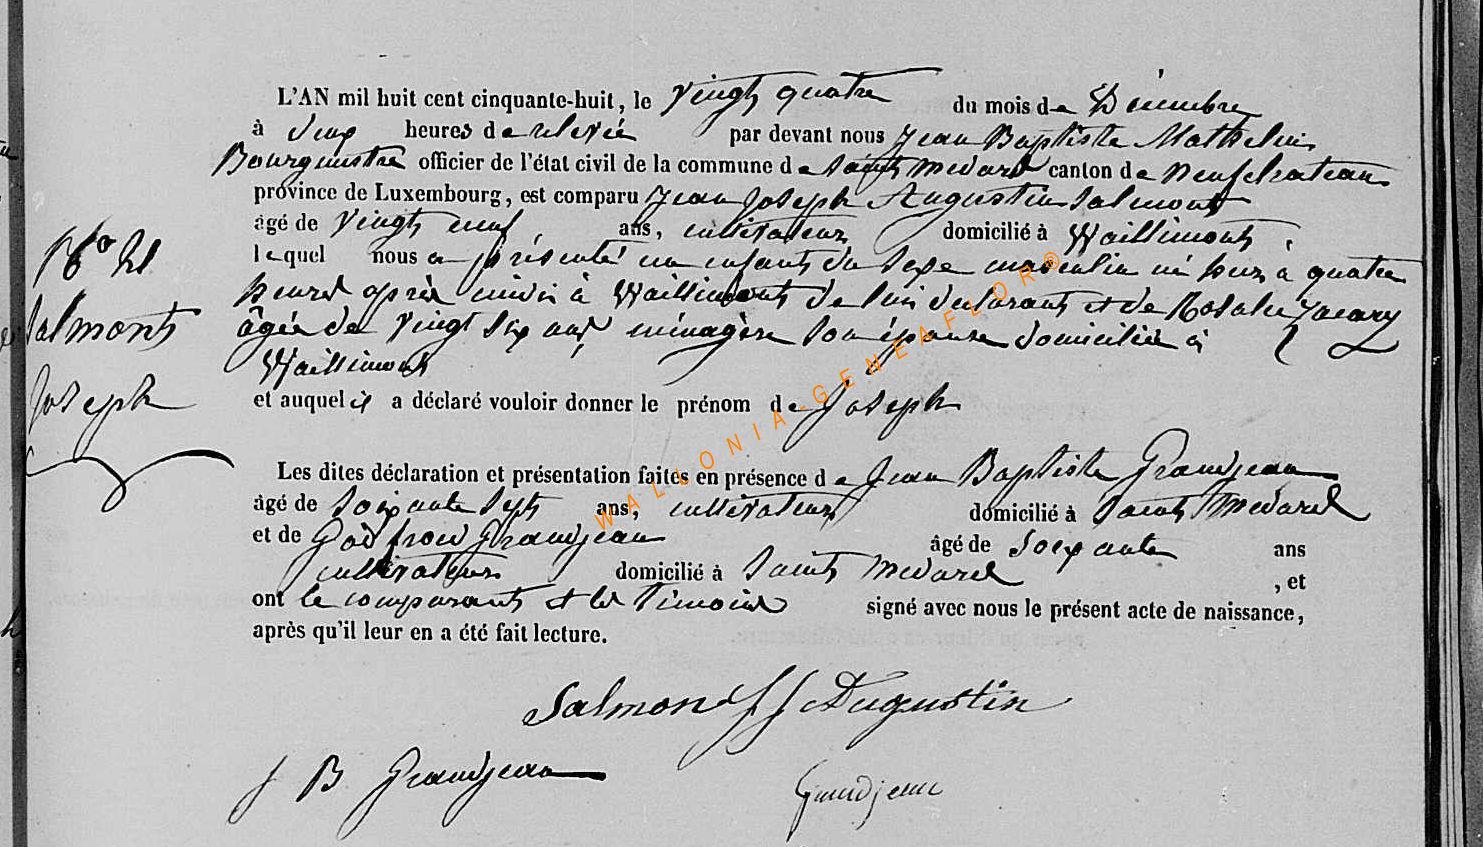 L'AN mil huit cent cinquante-huit, le vingt quatre du mois de Décembre
à deux heures de relevée par devant nous Jean Baptiste Mathelin
Bourgmestre officier de l'état civil de la commune de Saint Medard canton de Neufchateau
province de Luxembourg, est comparu Jean Joseph Augustin Salmont
âgé de vingt neuf ans, cultivateur domicilié à Waillimont
lequel nous a présenté un enfant du sexe masculin né hier à quatre
heures après midi à Waillimont de lui déclarant et de Rosalie Jacary
âgée de vingt six ans ménagère son épouse domiciliée à
Waillimont
et auquel il a déclaré vouloir donner le prénom de Joseph
Les dites déclaration et présentation faites en présence de Jean Baptiste Grandjean
âgé de soixante sept ans, cultivateur domicilié à Saint Medard
et de Godfroid Grandjean âgé de soixante ans
cultivateur domicilié à Saint Medard , et
ont le comparant et les témoins signé avec nous le présent acte de naissance,
après qu'il leur en a été fait lecture.
Salmont
Joseph
Salmon J J Augustin
J B Grandjean
Grandjean
WALLONIA-GENEAFLOR®